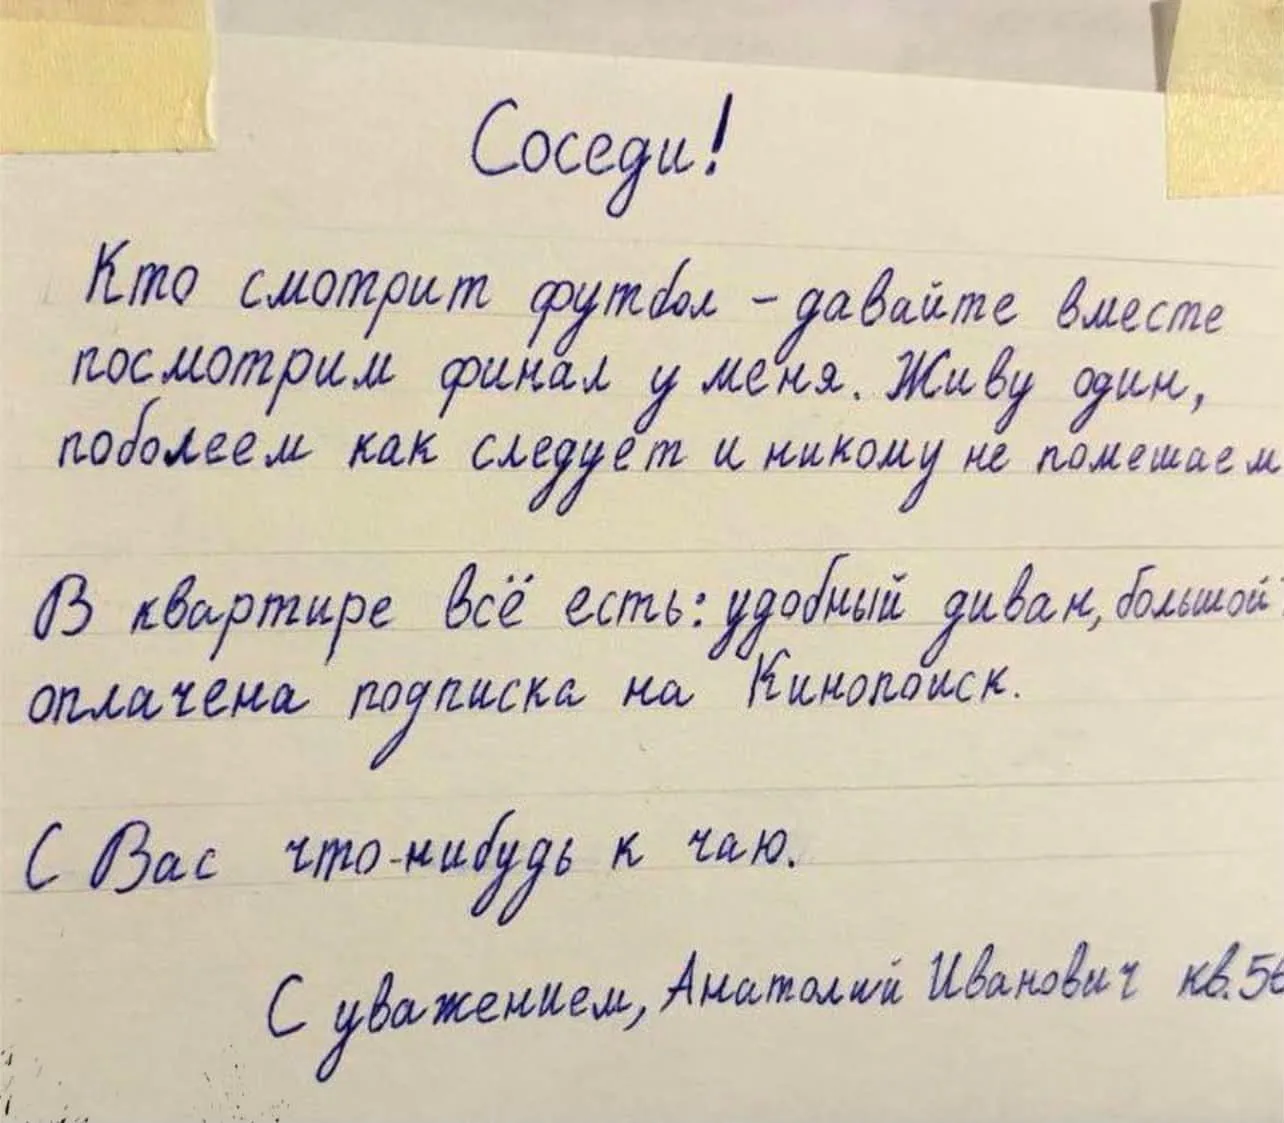 Соседи!
Кто смотрит футбол - давайте вместе
посмотрим финал у меня. Живу один,
поболеем как следует и никому не помешаем
В квартире всё есть: удобный диван, большой
оплачена подписка на Кинопоиск.
С Вас что-нибудь к чаю.
С уважением, Анатолий Иванович кв.